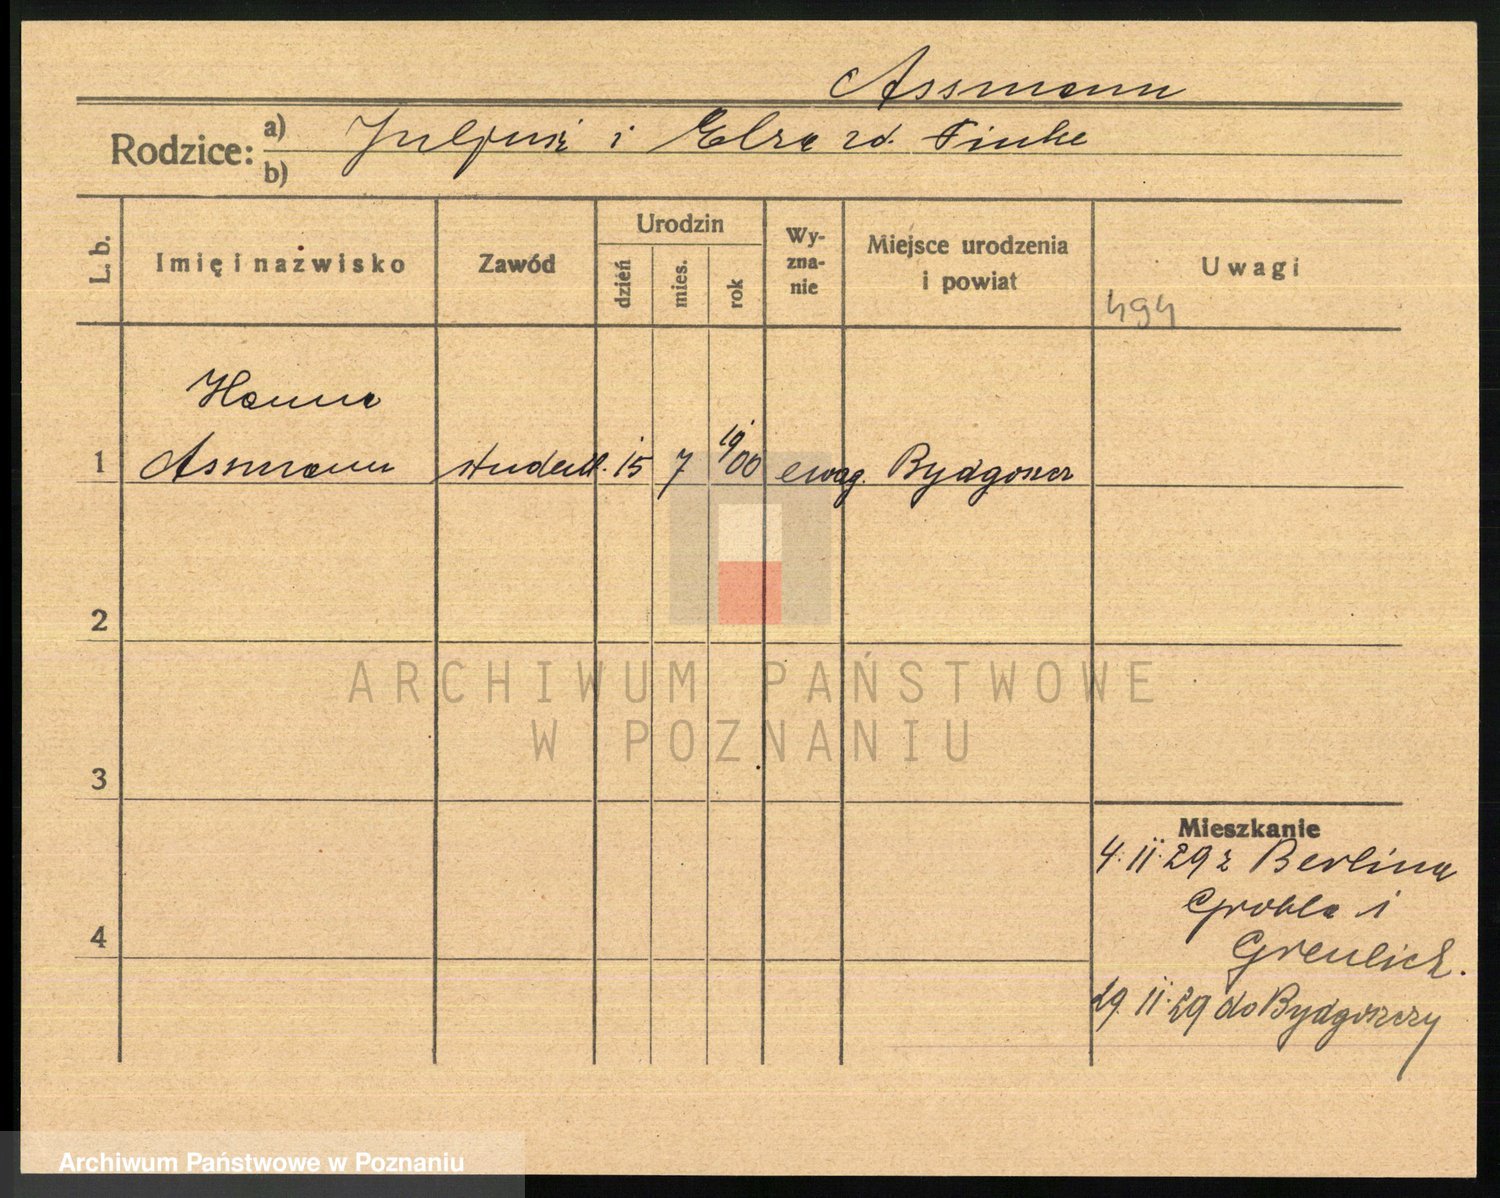 Assmann
Rodzice: a) Juljusz i Elza zd. Finke
b)
L. b.
Imię i nazwisko
Zawód
Urodzin
dzień
mies.
rok
Wy-
zna-
nie
Miejsce urodzenia
i powiat
Uwagi
494
Hanna
1 Assmann studentk. 15 7 1900 ewag. Bydgoszcz
2
ARCHIWUM PAŃSTWOWE
W POZNANIU
3
Mieszkanie
4. II. 29 z Berlina
Grobla 1
4
Greulich.
29. II. 29 do Bydgoszczy
Archiwum Państwowe w Poznaniu